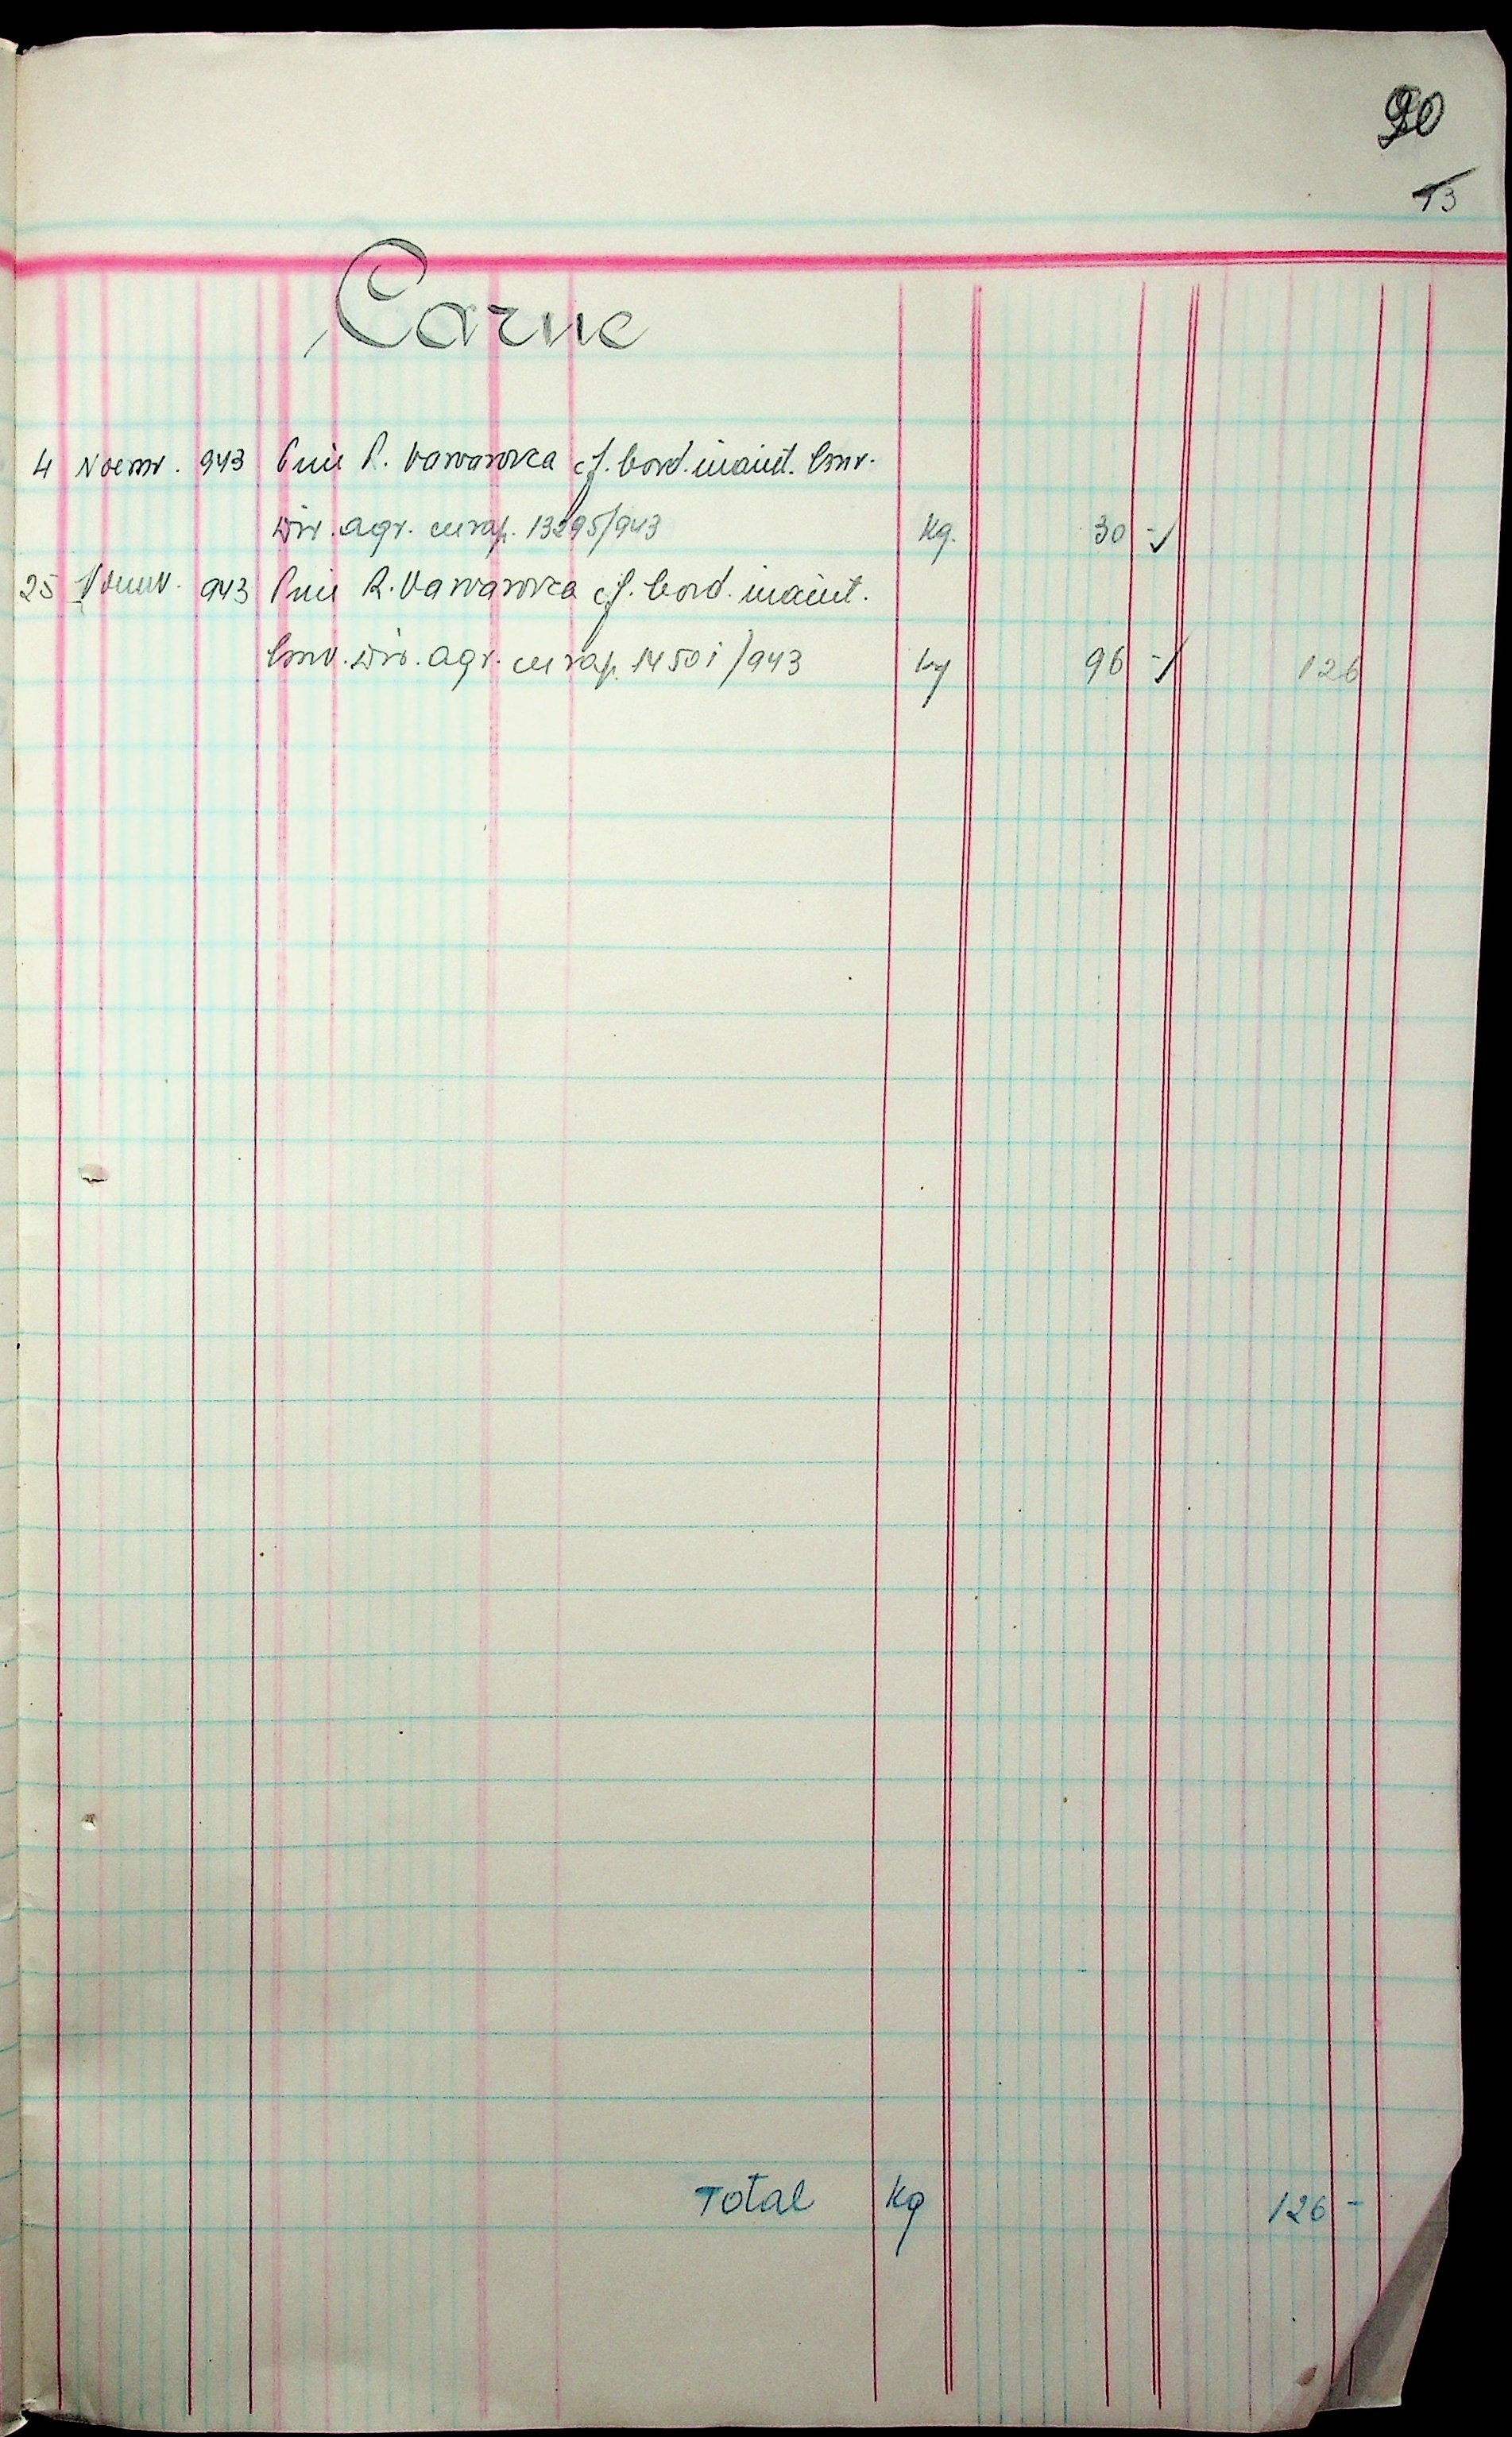 20
13
Carne
4 Noemv. 943 Prin P. Varvarovca cf. bord. inaint.
Dir. agr. cu rap. 13295/943 Kg. 30 -
25 Noemv. 943 Prin R. Varvarovca cf. bord. inaint.
Dir. agr. cu rap. 14501/943 kg 96 - 126
Total Kg 126 -